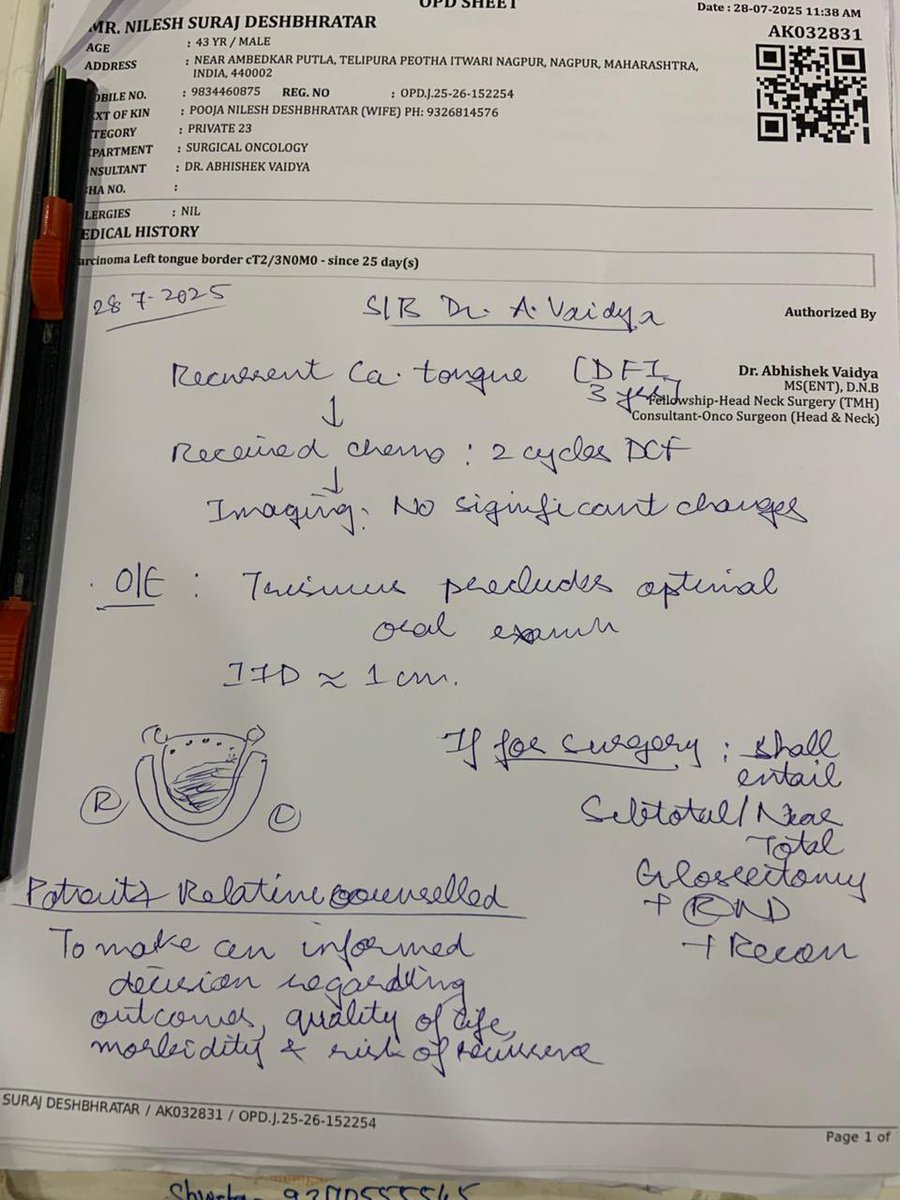 OPD SHEET
Date : 28-07-2025 11:38 AM
MR. NILESH SURAJ DESHBHRATAR
AK032831
AGE : 43 YR / MALE
ADDRESS : NEAR AMBEDKAR PUTLA, TELIPURA PEOTHA ITWARI NAGPUR, NAGPUR, MAHARASHTRA,
INDIA, 440002
OBILE NO. : 9834460875 REG. NO : OPD.J.25-26-152254
EXT OF KIN : POOJA NILESH DESHBHRATAR (WIFE) PH: 9326814576
TEGORY : PRIVATE 23
PARTMENT : SURGICAL ONCOLOGY
NSULTANT : DR. ABHISHEK VAIDYA
HA NO. :
LERGIES : NIL
EDICAL HISTORY
arcinoma Left tongue border cT2/3N0M0 - since 25 day(s)
28.7.2025
S/B Dr. A. Vaidya
Authorized By
Recurrent Ca. tongue [DFI
3 yrs]
Dr. Abhishek Vaidya
MS(ENT), D.N.B
Fellowship-Head Neck Surgery (TMH)
Consultant-Onco Surgeon (Head & Neck)
↓
Received chemo : 2 cycles DCF
↓
Imaging: No significant changes
O/E : Trismus precludes optimal
oral examn
IID ≈ 1 cm.
If for surgery : shall
entail
Subtotal/Near
Total
Glossectomy
+ RND
+ Recon
R L
Patient & Relative counselled
To make an informed
decision regarding
outcomes, quality of life,
morbidity & risk of recurrence
SURAJ DESHBHRATAR / AK032831 / OPD.J.25-26-152254
Page 1 of